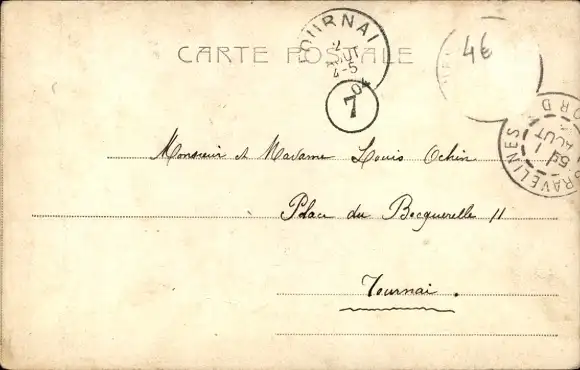 CARTE POSTALE
TOURNAI
2
AOUT
4-5
04
7
4€
GRAVELINES
NORD
5E
1
AOUT
Monsieur et Madame Louis Ochin
Place du Becquerelle 11
Tournai.